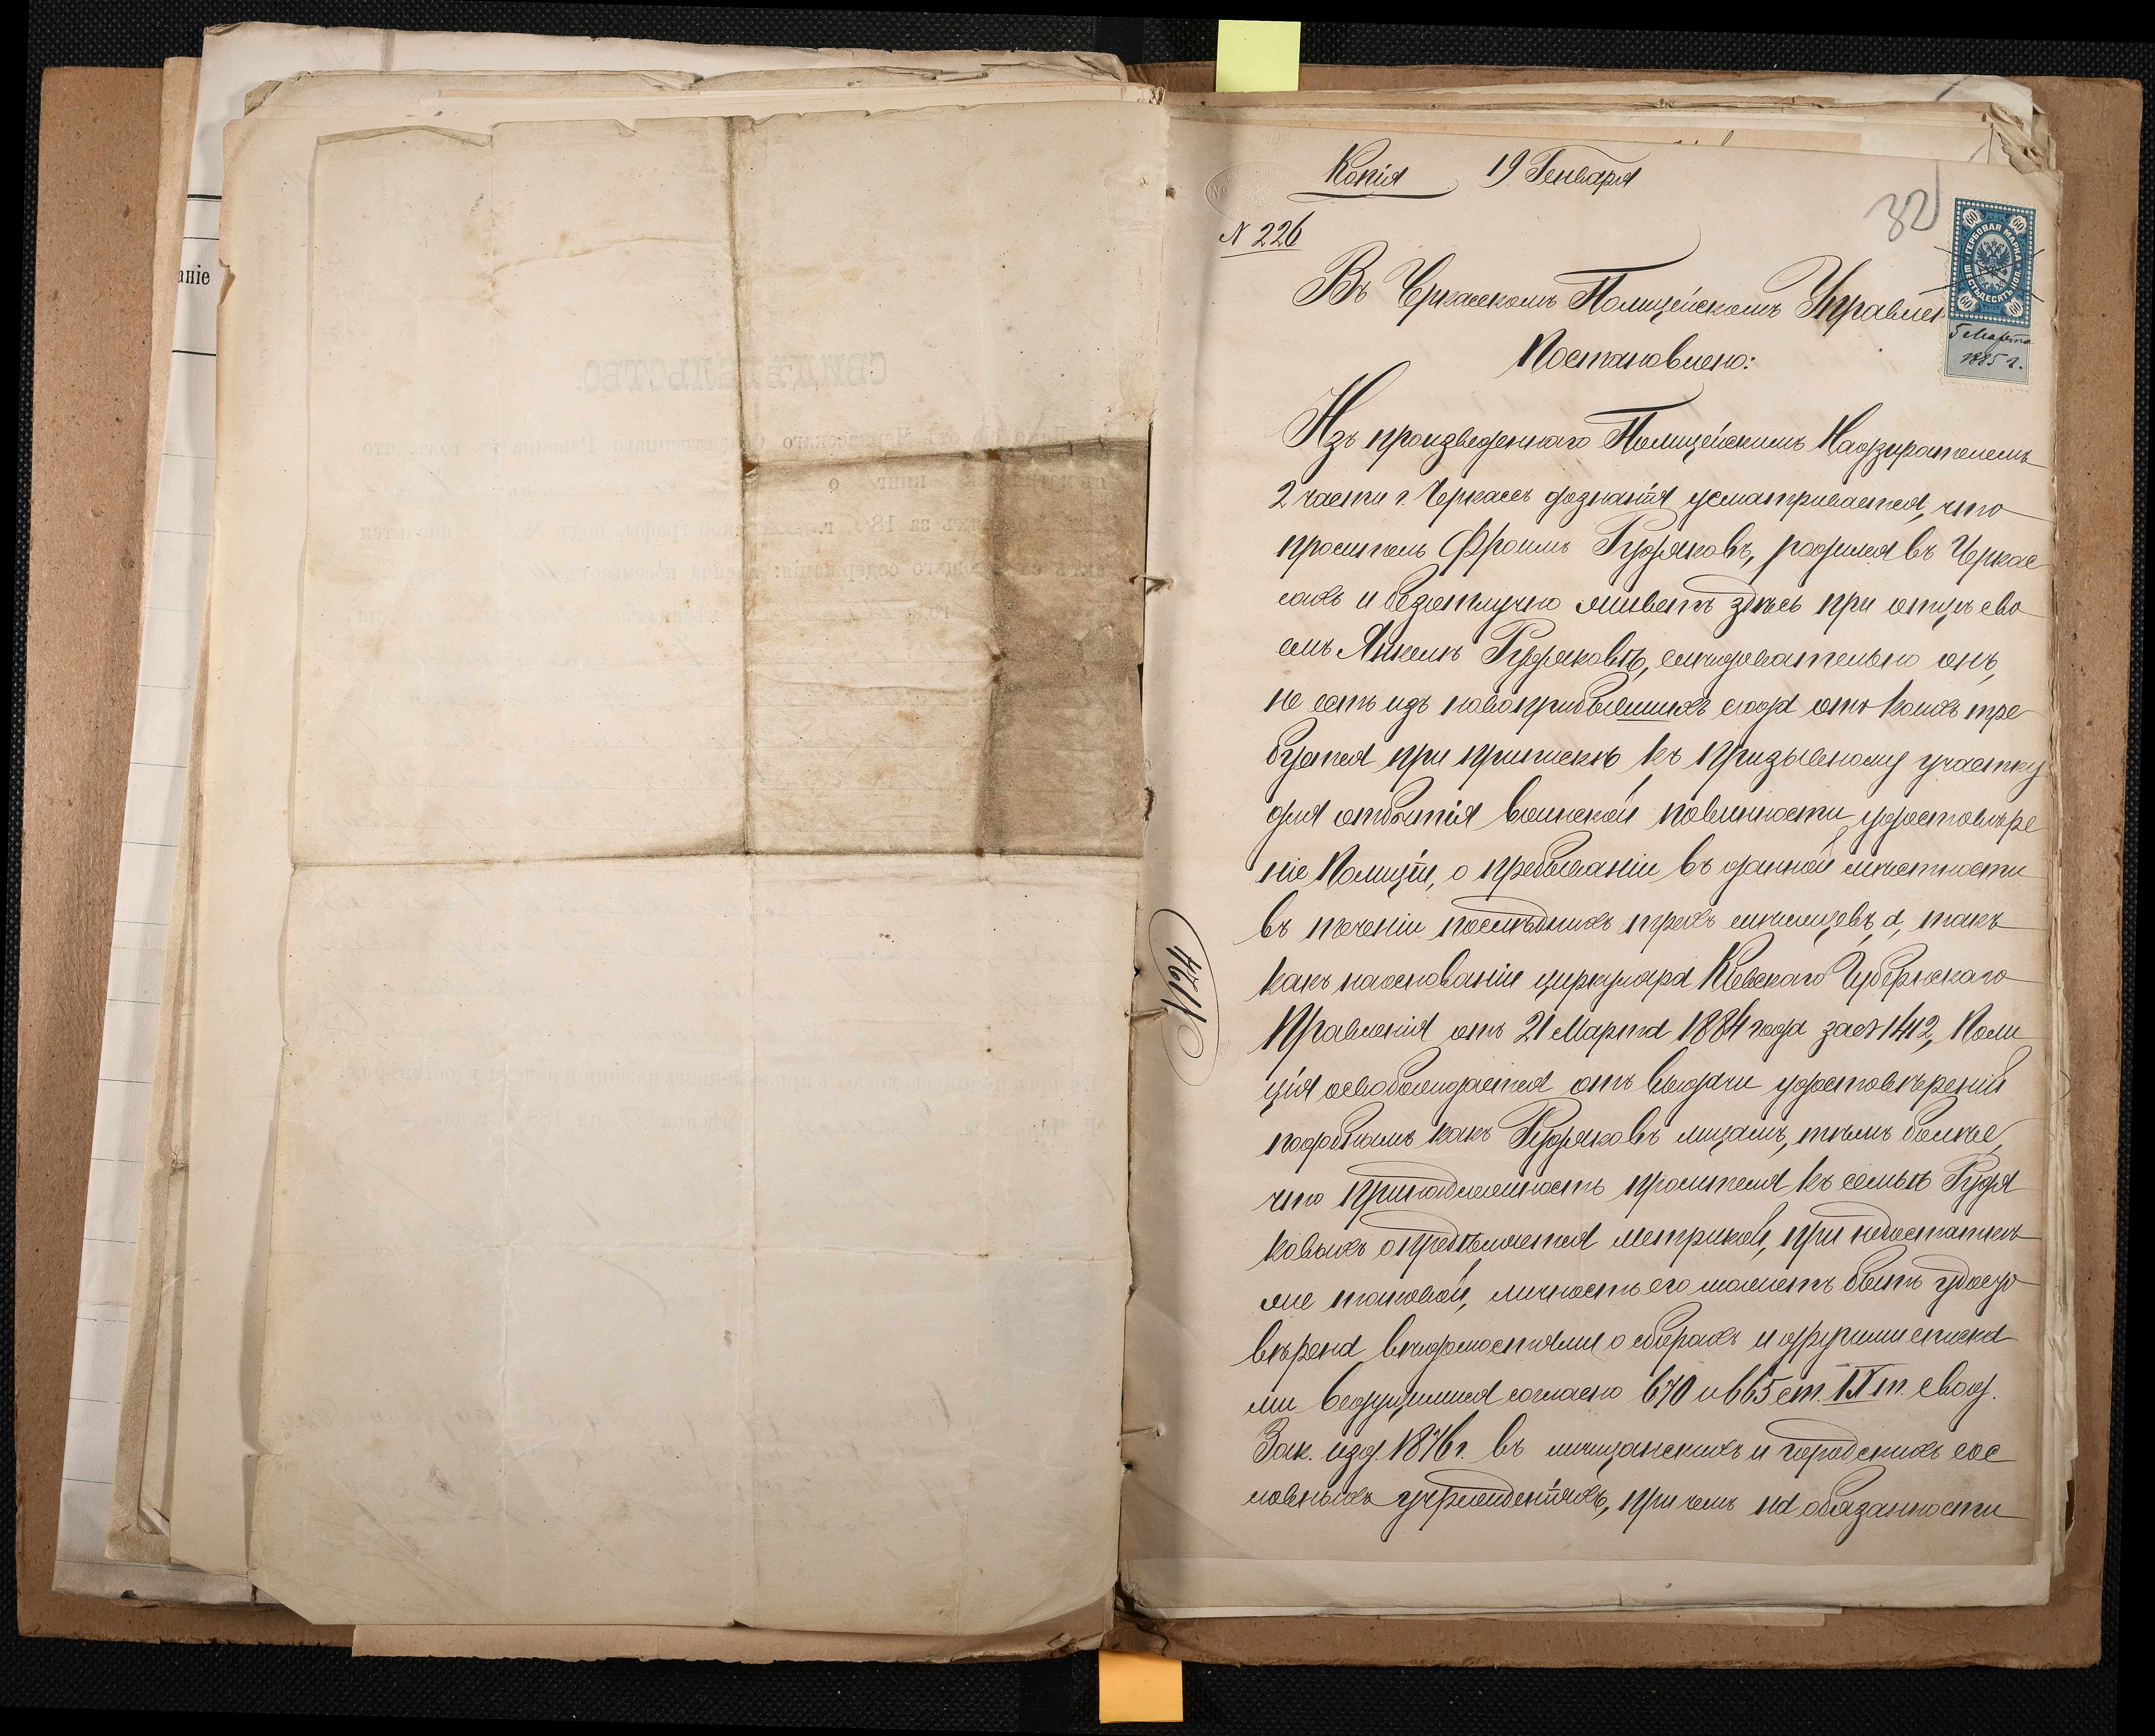 аніе
СВИДѢТЕЛЬСТВО.
Копія 19 Генваря
32
N 226
60 60
ГЕРБОВАЯ МАРКА
ШЕСТЬДЕСЯТЪ КОП.
60 60
5 Марта
1885 г.
Въ Черкасскомъ Полицейскомъ Управлен
Постановлено:
Изъ произведеннаго Полицейскимъ Надзирателемъ
2 части г. Черкассъ дознанія усматривается, что
проситель Фроимъ Рудяковъ, родился въ Черкас
сахъ и безотлучно живетъ здѣсь при отцѣ сво
емъ Янкелѣ Рудяковѣ, слѣдовательно онъ,
не есть изъ новоприбывшихъ сюда отъ коихъ тре
буется при припискѣ къ призывному участку
для отбытія воинской повинности удостовѣре
ніе Полиціи, о пребываніи въ данной мѣстности
въ теченіи послѣднихъ трехъ мѣсяцевъ, а, такъ
какъ наоснованіи циркуляра Кіевскаго Губернскаго
Правленія отъ 21 Марта 1884 года за N 1412, Поли
ція освобождается отъ выдачи удостовѣреній
подобнымъ какъ Рудяковъ лицамъ, тѣмъ болѣе,
что принадлежность просителя къ семьѣ Рудя
ковыхъ опредѣляется метрикой, при недостаткѣ
же таковой, личность его можетъ быть удосто
вѣрена вѣдомостями о сборахъ и другими списка
ми ведущимися согласно 670 и 665 ст. IX т. Свод.
Зак. изд. 1876 г. въ мѣщанскихъ и городскихъ сос
ловныхъ учрежденіяхъ, при чемъ на обязанности
N 124